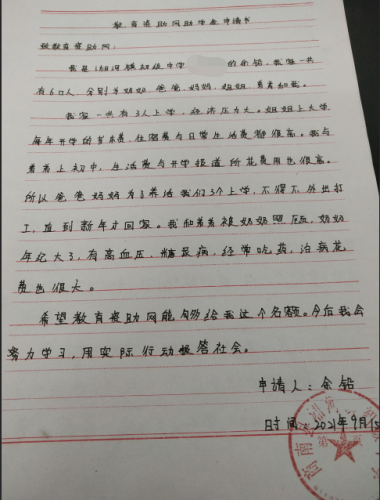 教育资助网助学金申请书
敬教育资助网：
我是湘河镇初级中学 的余铅，我家一共
有6口人，分别是奶奶、爸爸、妈妈、姐姐、弟弟和我。
我家一共有3人上学，经济压力大。姐姐上大学，
每年开学的学杂费，住宿费与日常生活费都很高。我与
弟弟上初中，生活费与开学报道所花费用也很高。
所以爸爸妈妈为了养活我们3个上学，不得不外出打
工，直到新年才回家。我和弟弟被奶奶照顾，奶奶
年纪大了，有高血压、糖尿病，经常吃药，治病花
费也很大。
希望教育资助网能够给我这个名额。今后我会
努力学习，用实际行动报答社会。
申请人：余铅
时间：2021年9月15
商南县湘河